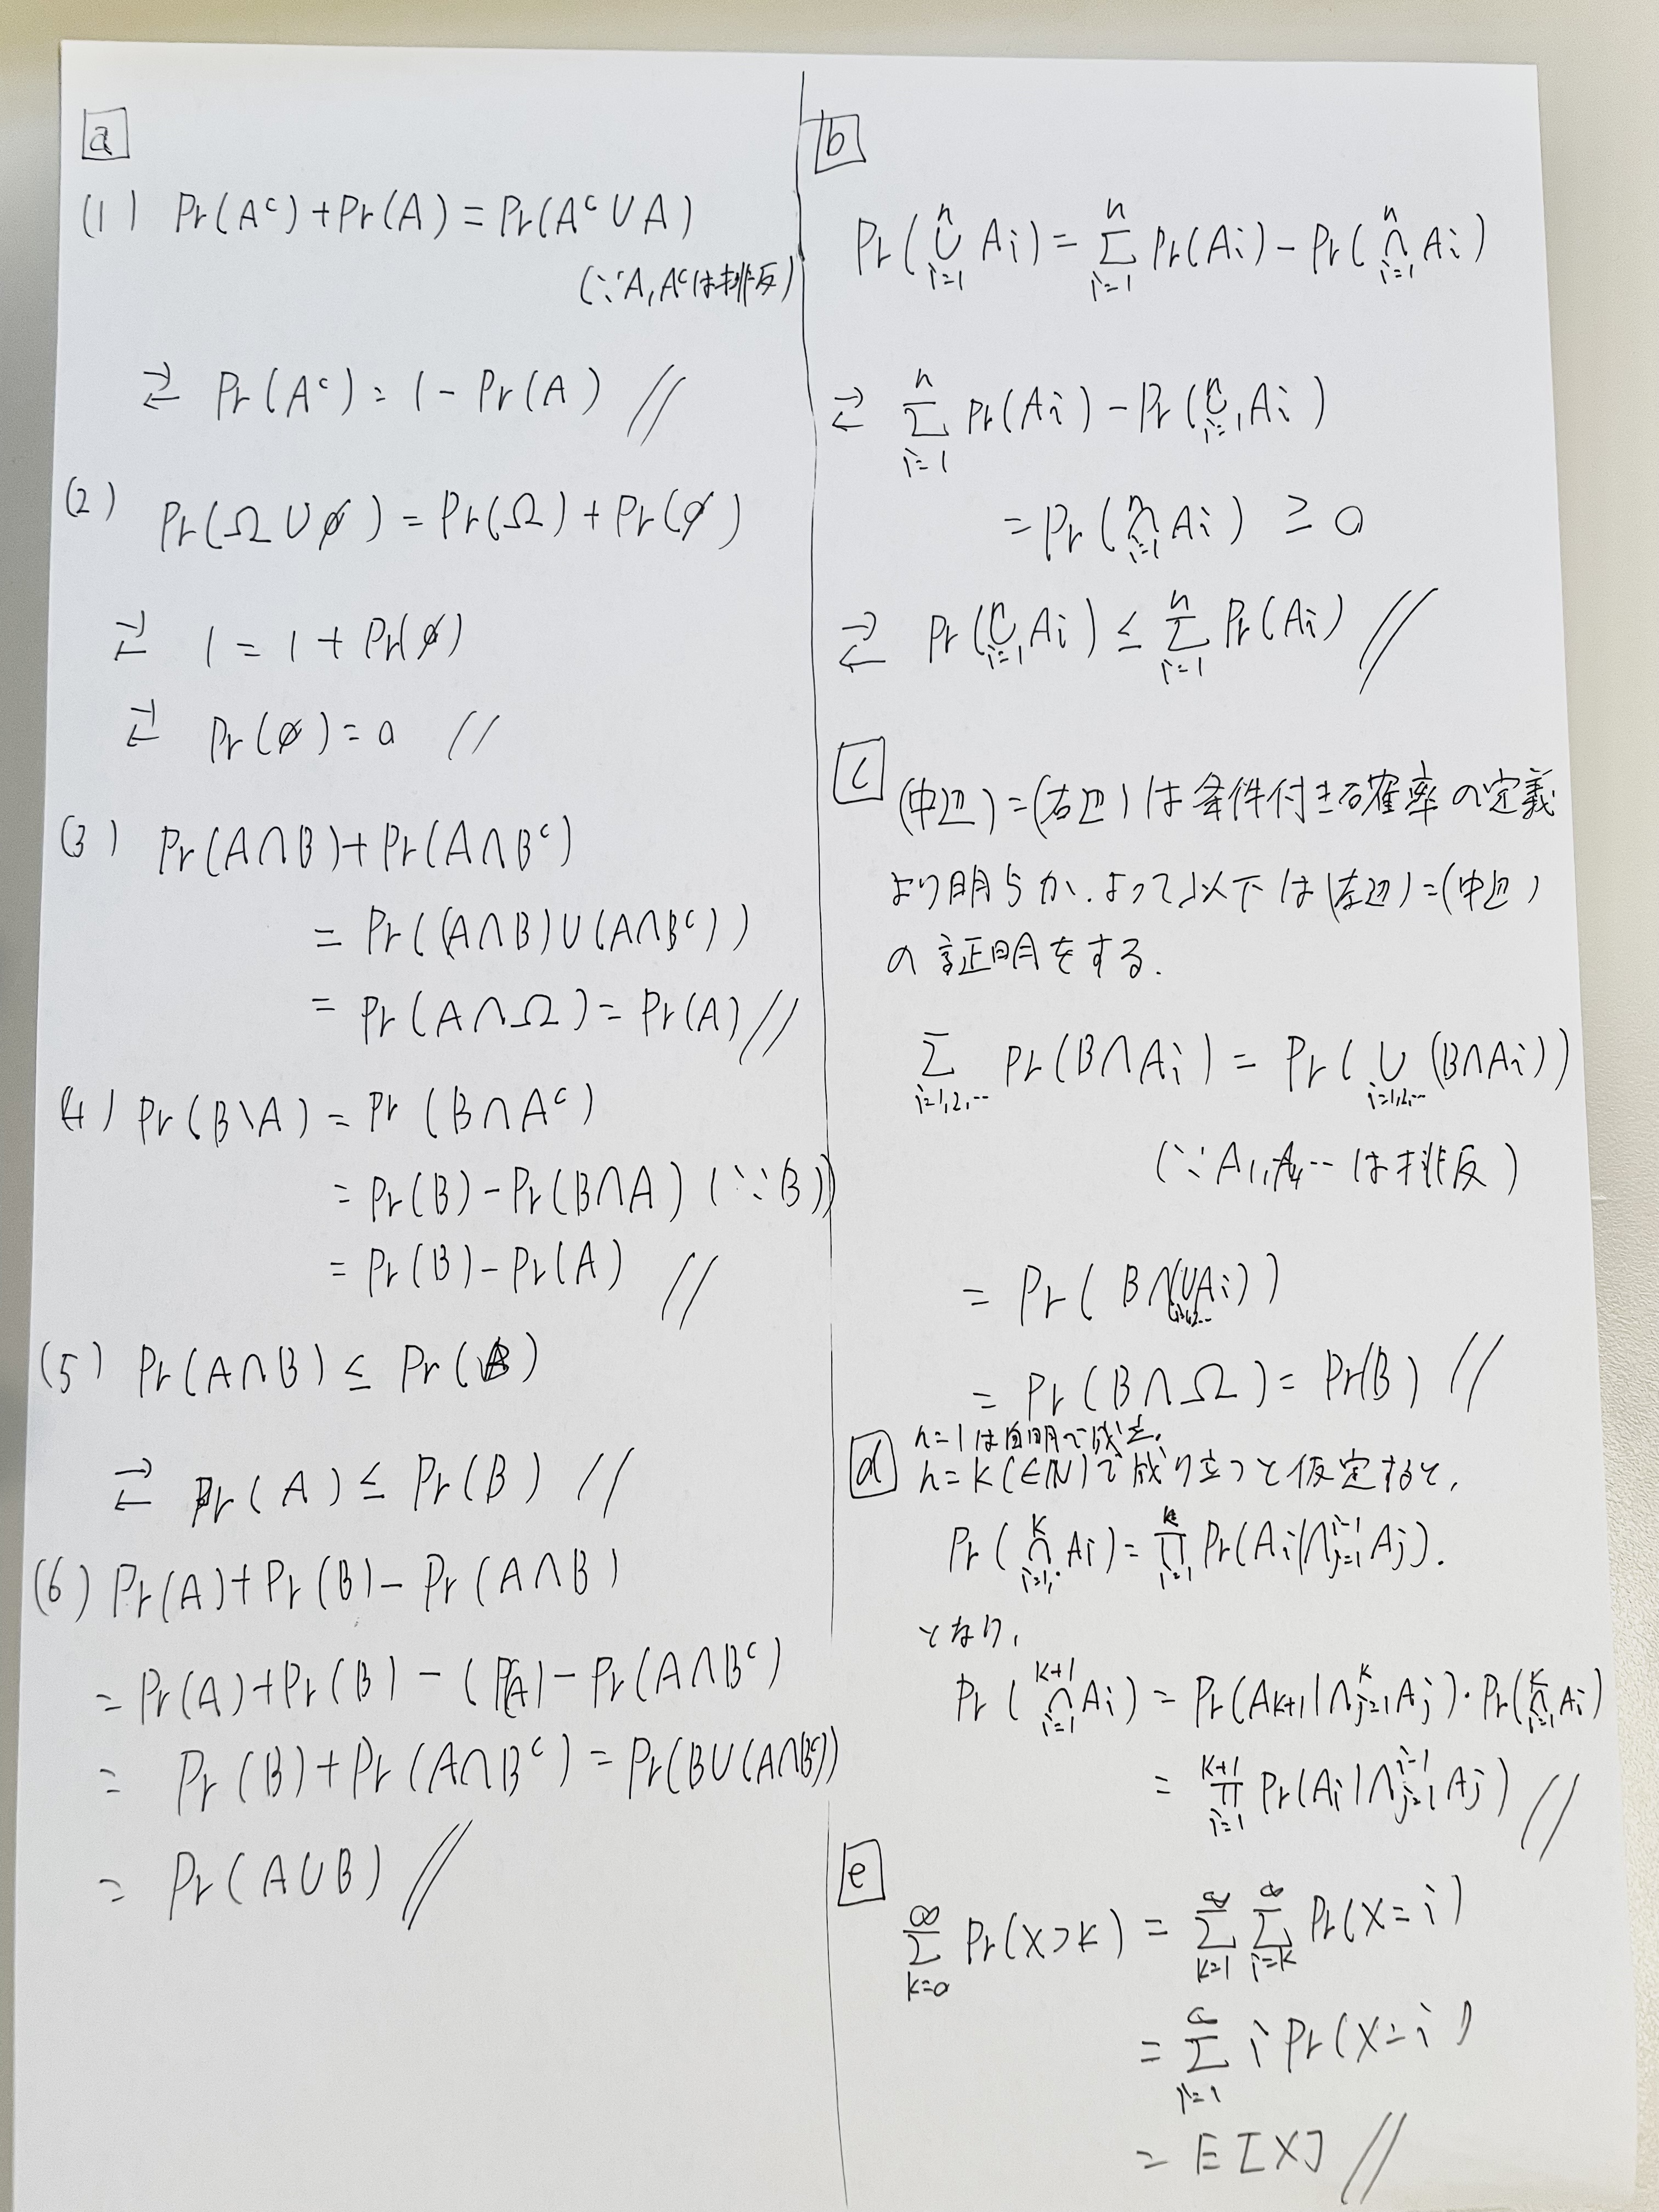 a
(1) Pr(Aᶜ)+Pr(A)=Pr(Aᶜ∪A)
(∵A,Aᶜは排反)
⇄ Pr(Aᶜ)=1-Pr(A) //
(2) Pr(Ω∪∅)=Pr(Ω)+Pr(∅)
⇄ 1=1+Pr(∅)
⇄ Pr(∅)=0 //
(3) Pr(A∩B)+Pr(A∩Bᶜ)
=Pr((A∩B)∪(A∩Bᶜ))
=Pr(A∩Ω)=Pr(A) //
(4) Pr(B\A)=Pr(B∩Aᶜ)
=Pr(B)-Pr(B∩A) (∵B))
=Pr(B)-Pr(A) //
(5) Pr(A∩B)≤Pr(B)
⇄ Pr(A)≤Pr(B) //
(6) Pr(A)+Pr(B)-Pr(A∩B)
=Pr(A)+Pr(B)-(P(A)-Pr(A∩Bᶜ)
=Pr(B)+Pr(A∩Bᶜ)=Pr(B∪(A∩Bᶜ))
=Pr(A∪B) //
b
Pr(∪ⁿᵢ₌₁ Ai)=Σⁿᵢ₌₁ Pr(Ai)-Pr(∩ⁿᵢ₌₁ Ai)
⇄ Σⁿᵢ₌₁ Pr(Ai)-Pr(∪ⁿᵢ₌₁ Ai)
=Pr(∩ⁿᵢ₌₁ Ai) ≥ 0
⇄ Pr(∪ⁿᵢ₌₁ Ai)≤Σⁿᵢ₌₁ Pr(Ai) //
c (中辺)=(右辺)は条件付き確率の定義
より明らか.よって以下は(左辺)=(中辺)
の証明をする.
Σ_{i=1,2,…} Pr(B∩Ai)=Pr(∪_{i=1,2,…}(B∩Ai))
(∵A₁,…は排反)
=Pr(B∩(∪_{i=1,2…}Ai))
=Pr(B∩Ω)=Pr(B) //
n=1は自明で成立.
d n=k(∈ℕ)で成り立つと仮定すると,
Pr(∩ᵏᵢ₌₁ Ai)=∏ᵏᵢ₌₁ Pr(Ai|∩ⁱ⁻¹ⱼ₌₁Aj).
となり,
Pr(∩ᵏ⁺¹ᵢ₌₁ Ai)=Pr(Ak+1|∩ᵏⱼ₌₁Aj)・Pr(∩ᵏᵢ₌₁Ai)
=∏ᵏ⁺¹ᵢ₌₁ Pr(Ai|∩ⁱ⁻¹ⱼ₌₁Aj) //
e
Σ^∞_{k=0} Pr(X>k)=Σ^∞_{k=1} Σ^∞_{i=k} Pr(X=i)
=Σ^∞_{i=1} i Pr(X=i)
=E[X] //